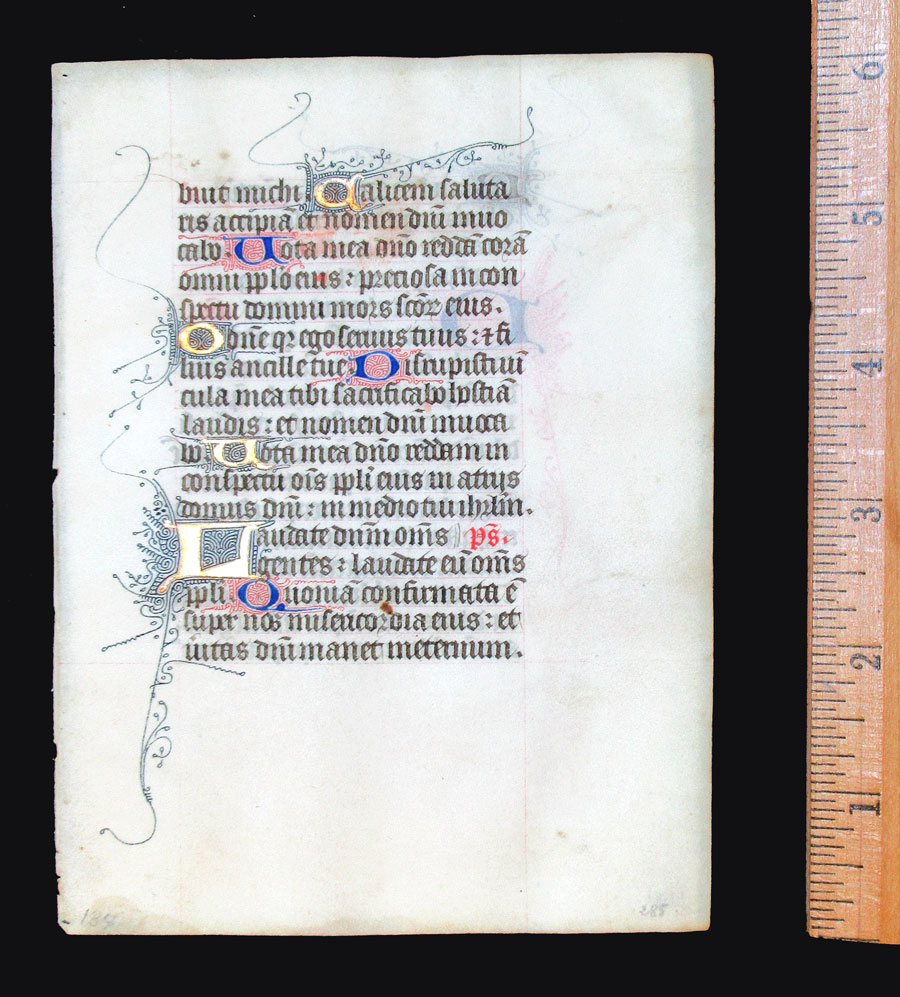 buit michi Calicem saluta
ris accipiā et nomen dn̄i inuo
cabo Uota mea dn̄o reddā corā
omni pplo eius : preciosa in con
spectu domini mors sc̄oꝝ eius .
O dn̄e qꝛ ego seruus tuus : ⁊ fi
lius ancille tue Dirupisti uī
cula mea tibi sacrificabo hostiā
laudis : et nomen dn̄i inuoca
bo . Uota mea dn̄o reddam in
conspectu oīs ppl̄i eius in atrijs
domus dn̄i : in medio tui ihrl̄m .
Laudate dn̄m om̄s ps̄ .
gentes : laudate eū om̄s
ppl̄i Quoniā confirmata ē
super nos misericordia eius : et
ūitas dn̄i manet in eternum .
187
285
6
5
4
3
2
1